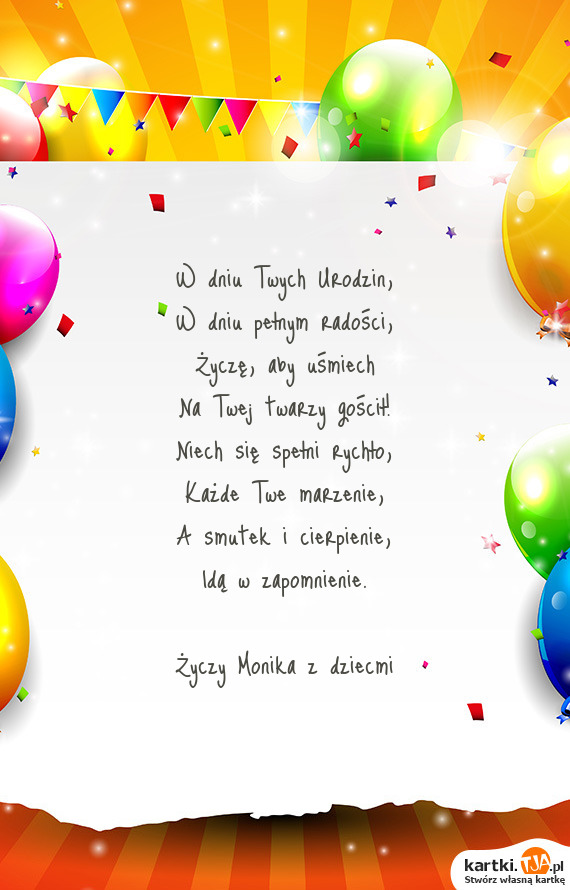 W dniu Twych Urodzin,
W dniu pełnym radości,
Życzę, aby uśmiech
Na Twej twarzy gościł!
Niech się spełni rychło,
Każde Twe marzenie,
A smutek i cierpienie,
Idą w zapomnienie.
Życzy Monika z dziecmi
kartki.TJA.pl
Stwórz własną kartkę